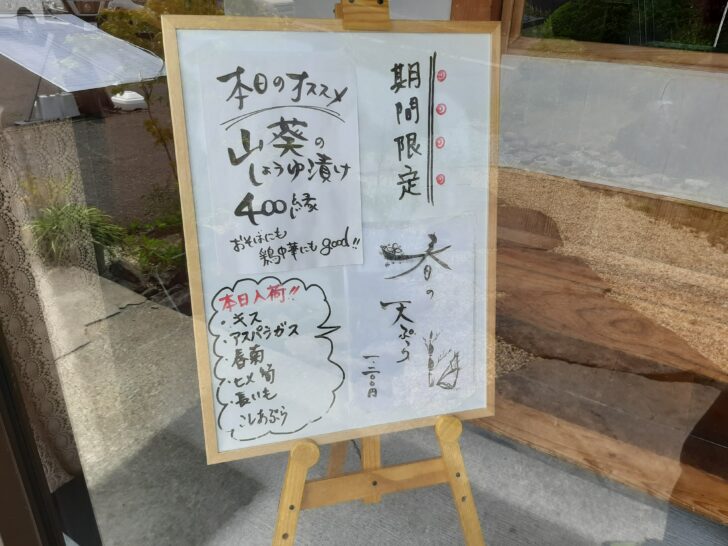 期間限定
春の
天ぷら
一、二〇〇円
本日のオススメ
山葵の
しょうゆ漬け
400縁
おそばにも
鶏中華にもgood!!
本日入荷!!
・キス
・アスパラガス
・春菊
・ヒメ筍
・長いも
こしあぶら